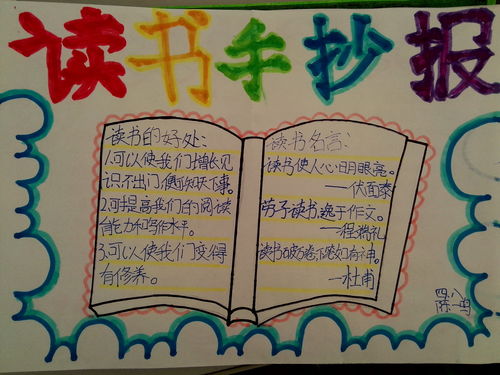 读书手抄报
读书的好处:
1.可以使我们增长见
识,不出门,便可知天下事。
2.可提高我们的阅读
能力和写作水平。
3.可以使我们变得
有修养。
读书名言:
读书使人心明眼亮。
——伏尔泰
劳于读书,逸于作文。
——程端礼
读书破万卷,下笔如有神。
——杜甫
四、八
陈